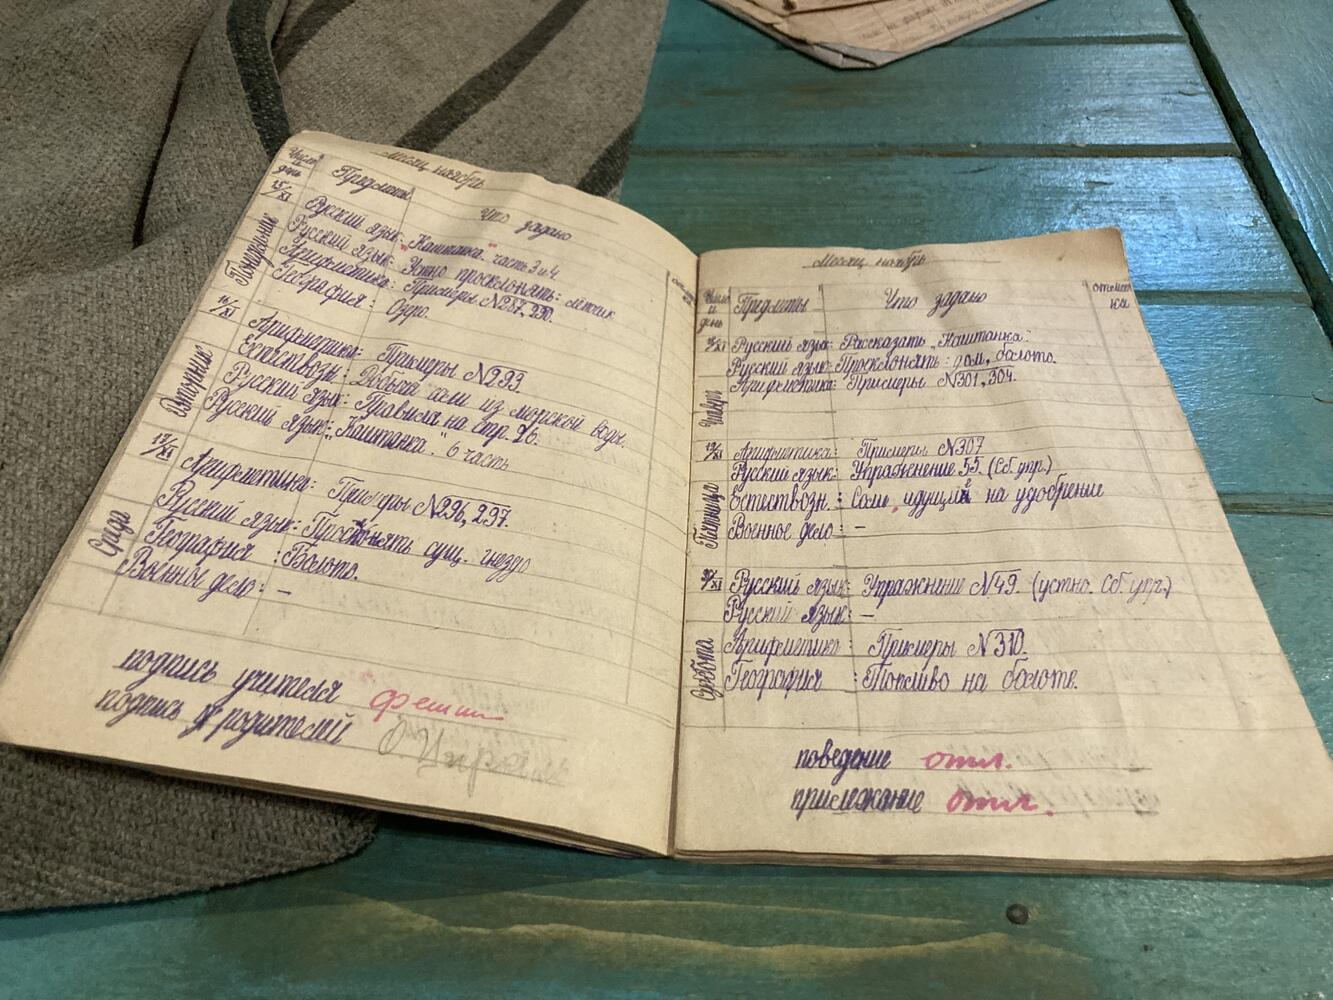 Месяц ноябрь
Число и день
Предметы
Что задано
15/XI
Понедельник
Русский язык: "Каштанка" часть 3 и 4
Русский язык: Устно просклонять: летчик
Арифметика: Примеры №287, 290.
География: Озеро.
16/XI
Вторник
Арифметика: Примеры №293
Естествозн.: Добыча соли из морской воды.
Русский язык: Правила на стр. 26.
Русский язык: "Каштанка" 6 часть
17/XI
Среда
Арифметика: Примеры №296, 297.
Русский язык: Просклонять сущ. гнездо
География: Болото.
Военное дело: –
подпись учителя
подпись родителей
Месяц ноябрь
Число и день
Предметы
Что задано
18/XI
Четверг
Русский язык: Рассказать "Каштанка"
Русский язык: Просклонять: дом, болото.
Арифметика: Примеры №301, 304.
19/XI
Пятница
Арифметика: Примеры №307
Русский язык: Упражнение 55. (Сб. упр.)
Естествозн.: Соли, идущие на удобрение
Военное дело: –
20/XI
Суббота
Русский язык: Упражнение №49. (устно. Сб. упр.)
Русский язык: –
Арифметика: Примеры №310.
География: Топливо на болоте.
поведение отл.
прилежание отл.